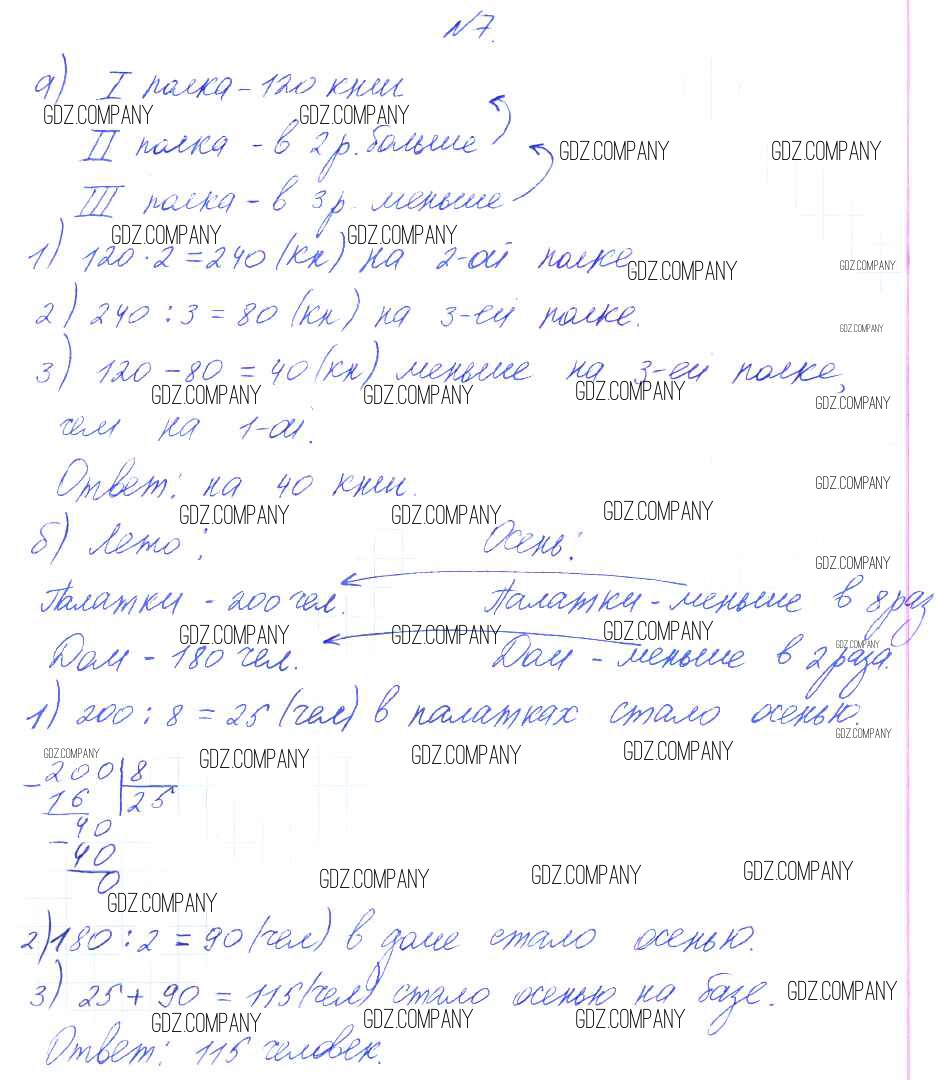 №7.
а) I полка - 120 книг
GDZ.COMPANY GDZ.COMPANY
II полка - в 2 р. больше
GDZ.COMPANY GDZ.COMPANY
III полка - в 3 р. меньше
GDZ.COMPANY GDZ.COMPANY
1) 120 · 2 = 240 (кн) на 2-ой полке
GDZ.COMPANY GDZ.COMPANY
2) 240 : 3 = 80 (кн) на 3-ей полке.
GDZ.COMPANY
3) 120 - 80 = 40 (кн) меньше на 3-ей полке,
GDZ.COMPANY GDZ.COMPANY GDZ.COMPANY GDZ.COMPANY
чем на 1-ой.
Ответ: на 40 книг.
GDZ.COMPANY
GDZ.COMPANY GDZ.COMPANY GDZ.COMPANY
б) Лето: Осень:
GDZ.COMPANY
Палатки - 200 чел. Палатки - меньше в 8 раз
GDZ.COMPANY GDZ.COMPANY GDZ.COMPANY GDZ.COMPANY
Дом - 180 чел. Дом - меньше в 2 раза.
1) 200 : 8 = 25 (чел) в палатках стало осенью.
GDZ.COMPANY
GDZ.COMPANY GDZ.COMPANY GDZ.COMPANY GDZ.COMPANY
- 200 8
16 25
- 40
40
0
GDZ.COMPANY GDZ.COMPANY GDZ.COMPANY
GDZ.COMPANY
2) 180 : 2 = 90 (чел) в доме стало осенью.
3) 25 + 90 = 115 (чел) стало осенью на базе.
GDZ.COMPANY
GDZ.COMPANY GDZ.COMPANY GDZ.COMPANY
Ответ: 115 человек.